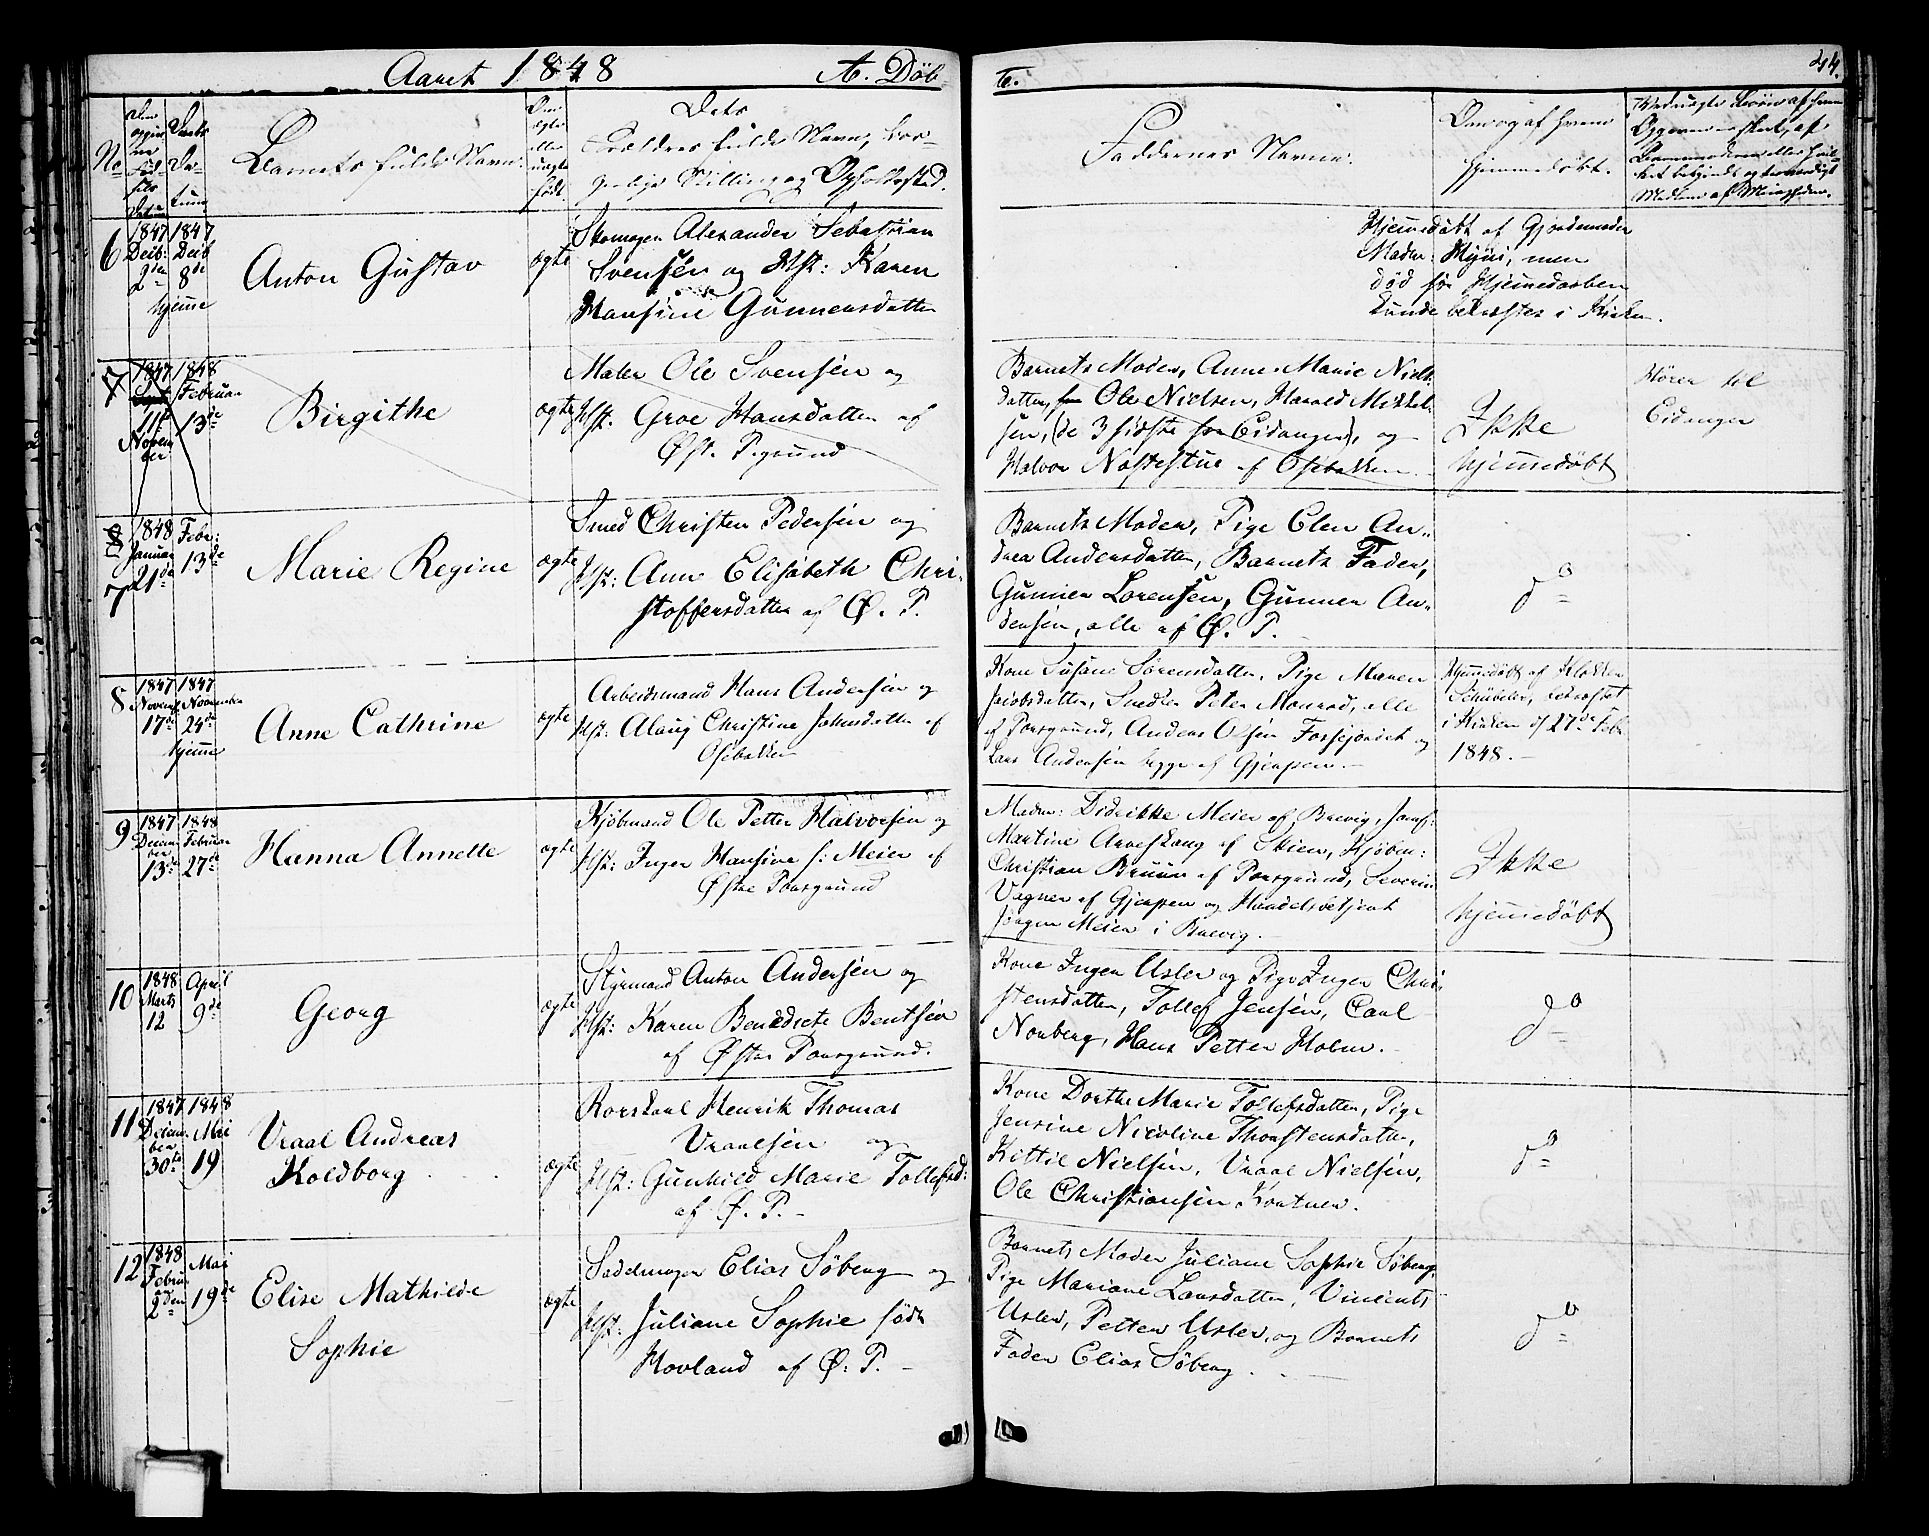 Aaret 1848
A. Døb
te.
44.
No
Den
opgiv
ne
Fød
sels
Datum
Daabs
Da-
tum
Barnets fulde Navn.
Om
ægte
eller
uægte
født.
Dets
Forældres fulde Navn, bor-
gerlige Stilling og Opholdssted.
Faddernes Navne.
Om og af hvem
hjemmedøbt.
6
1847
Decb:
2den
1847
Decb
8de
hjemme
Anton Gustav
ægte
Skomager Alexander Sebastian
Svensen og Hst: Karen
Hansine Gunnersdatter
Hjemmedøbt af Gjordemoder
Madm: , men
død før Hjemmedaaben
kunde bekræftes i Kirken.
7
1847
11te
Novem
ber
1848
Februar
13de
Birgithe
ægte
Maler Ole Svensen og
Hst. Groe Hansdatter af
Øst. P.grund
Barnets Moder, Anne Marie Niels-
datter, Ole Nielsen, Harald Mikkel-
sen, (de 3 sidste fra Eidanger), og
Halvor Nøstestue af Osebakken.
Ikke
hjemmedøbt
Hører til
Eidanger
8
7
1848
Januar
21de
Febr:
13de
Marie Regine
ægte
Smed Christen Pedersen og
Hst: Anne Elisabeth Chri-
stoffersdatter af Ø. P.
Barnets Moder, Pige Elen An-
drea Andersdatter, Barnets Fader,
Gunner Lorensen, Gunner An-
dersen, alle af Ø. P.
do
8
1847
Novemb
17de
1847
November
24de
hjemme
Anne Cathrine
ægte
Arbeidsmand Hans Andersen og
Hst: Alaug Christine Johnsdatter af
Osebakken
Kone Susane Sørensdatter, Pige Maren
Jacobsdatter, Snedker Peter Monrad, alle
af Porsgrund, Anders Olsen Fossejordet og
Lars Andersen begge af Gjerpen.
Hjemmedøbt af Klokker
Schubeler, bekræftet
i Kirken d/ 27de Feb
1848.
9
1847
Decem
ber
13de
1848
Februar
27de
Hanna Annette
ægte
Kjøbmand Ole Petter Halvorsen og
Hst: Inger Hansine f: Meier af
Østre Porsgrund
Madm: Didrikke Meier af Brevig, Jomf:
Martine Arveskoug af Skien, Kjøbm:
Christian Bruun af Porsgrund, Severin
Vagner af Gjerpen og Handelsbetjent
Jørgen Meier i Brevig.
Ikke
hjemmedøbt
10
1848
Marts
12
April
9de
Georg
ægte
Styrmand Anton Andersen og
Hst: Karen Benedicte Bentsen
af Østre Porsgrund.
Kone Inger Usler og Pige Inger Chri-
stensdatter, Tollef Jensen, Carl
Norberg, Hans Petter Holm.
do
11
1847
Decem
ber
30te
1848
Mai
19
Vraal Andreas
Holdborg
ægte
Rorskarl Henrik Thomas
Vraalsen og
Hst: Gunhild Marie Tollefsd:
af Ø. P.
Kone Dorthe Marie Tollefsdatter, Pige
Jensine Nicoline Thorstensdatter,
Kettil Nielsen, Vraal Nielsen,
Ole Christiansen Kortner.
do
12
1848
Febru
2den
Mai
19de
Elise Mathilde
Sophie
ægte
Sadelmager Elias Søberg og
Hst: Juliane Sophie født
Hovland af Ø: P.
Barnets Moder Juliane Sophie Søberg,
Pige Mariane Larsdatter, Vincents
Usler, Petter Usler, og Barnets
Fader Elias Søberg.
do